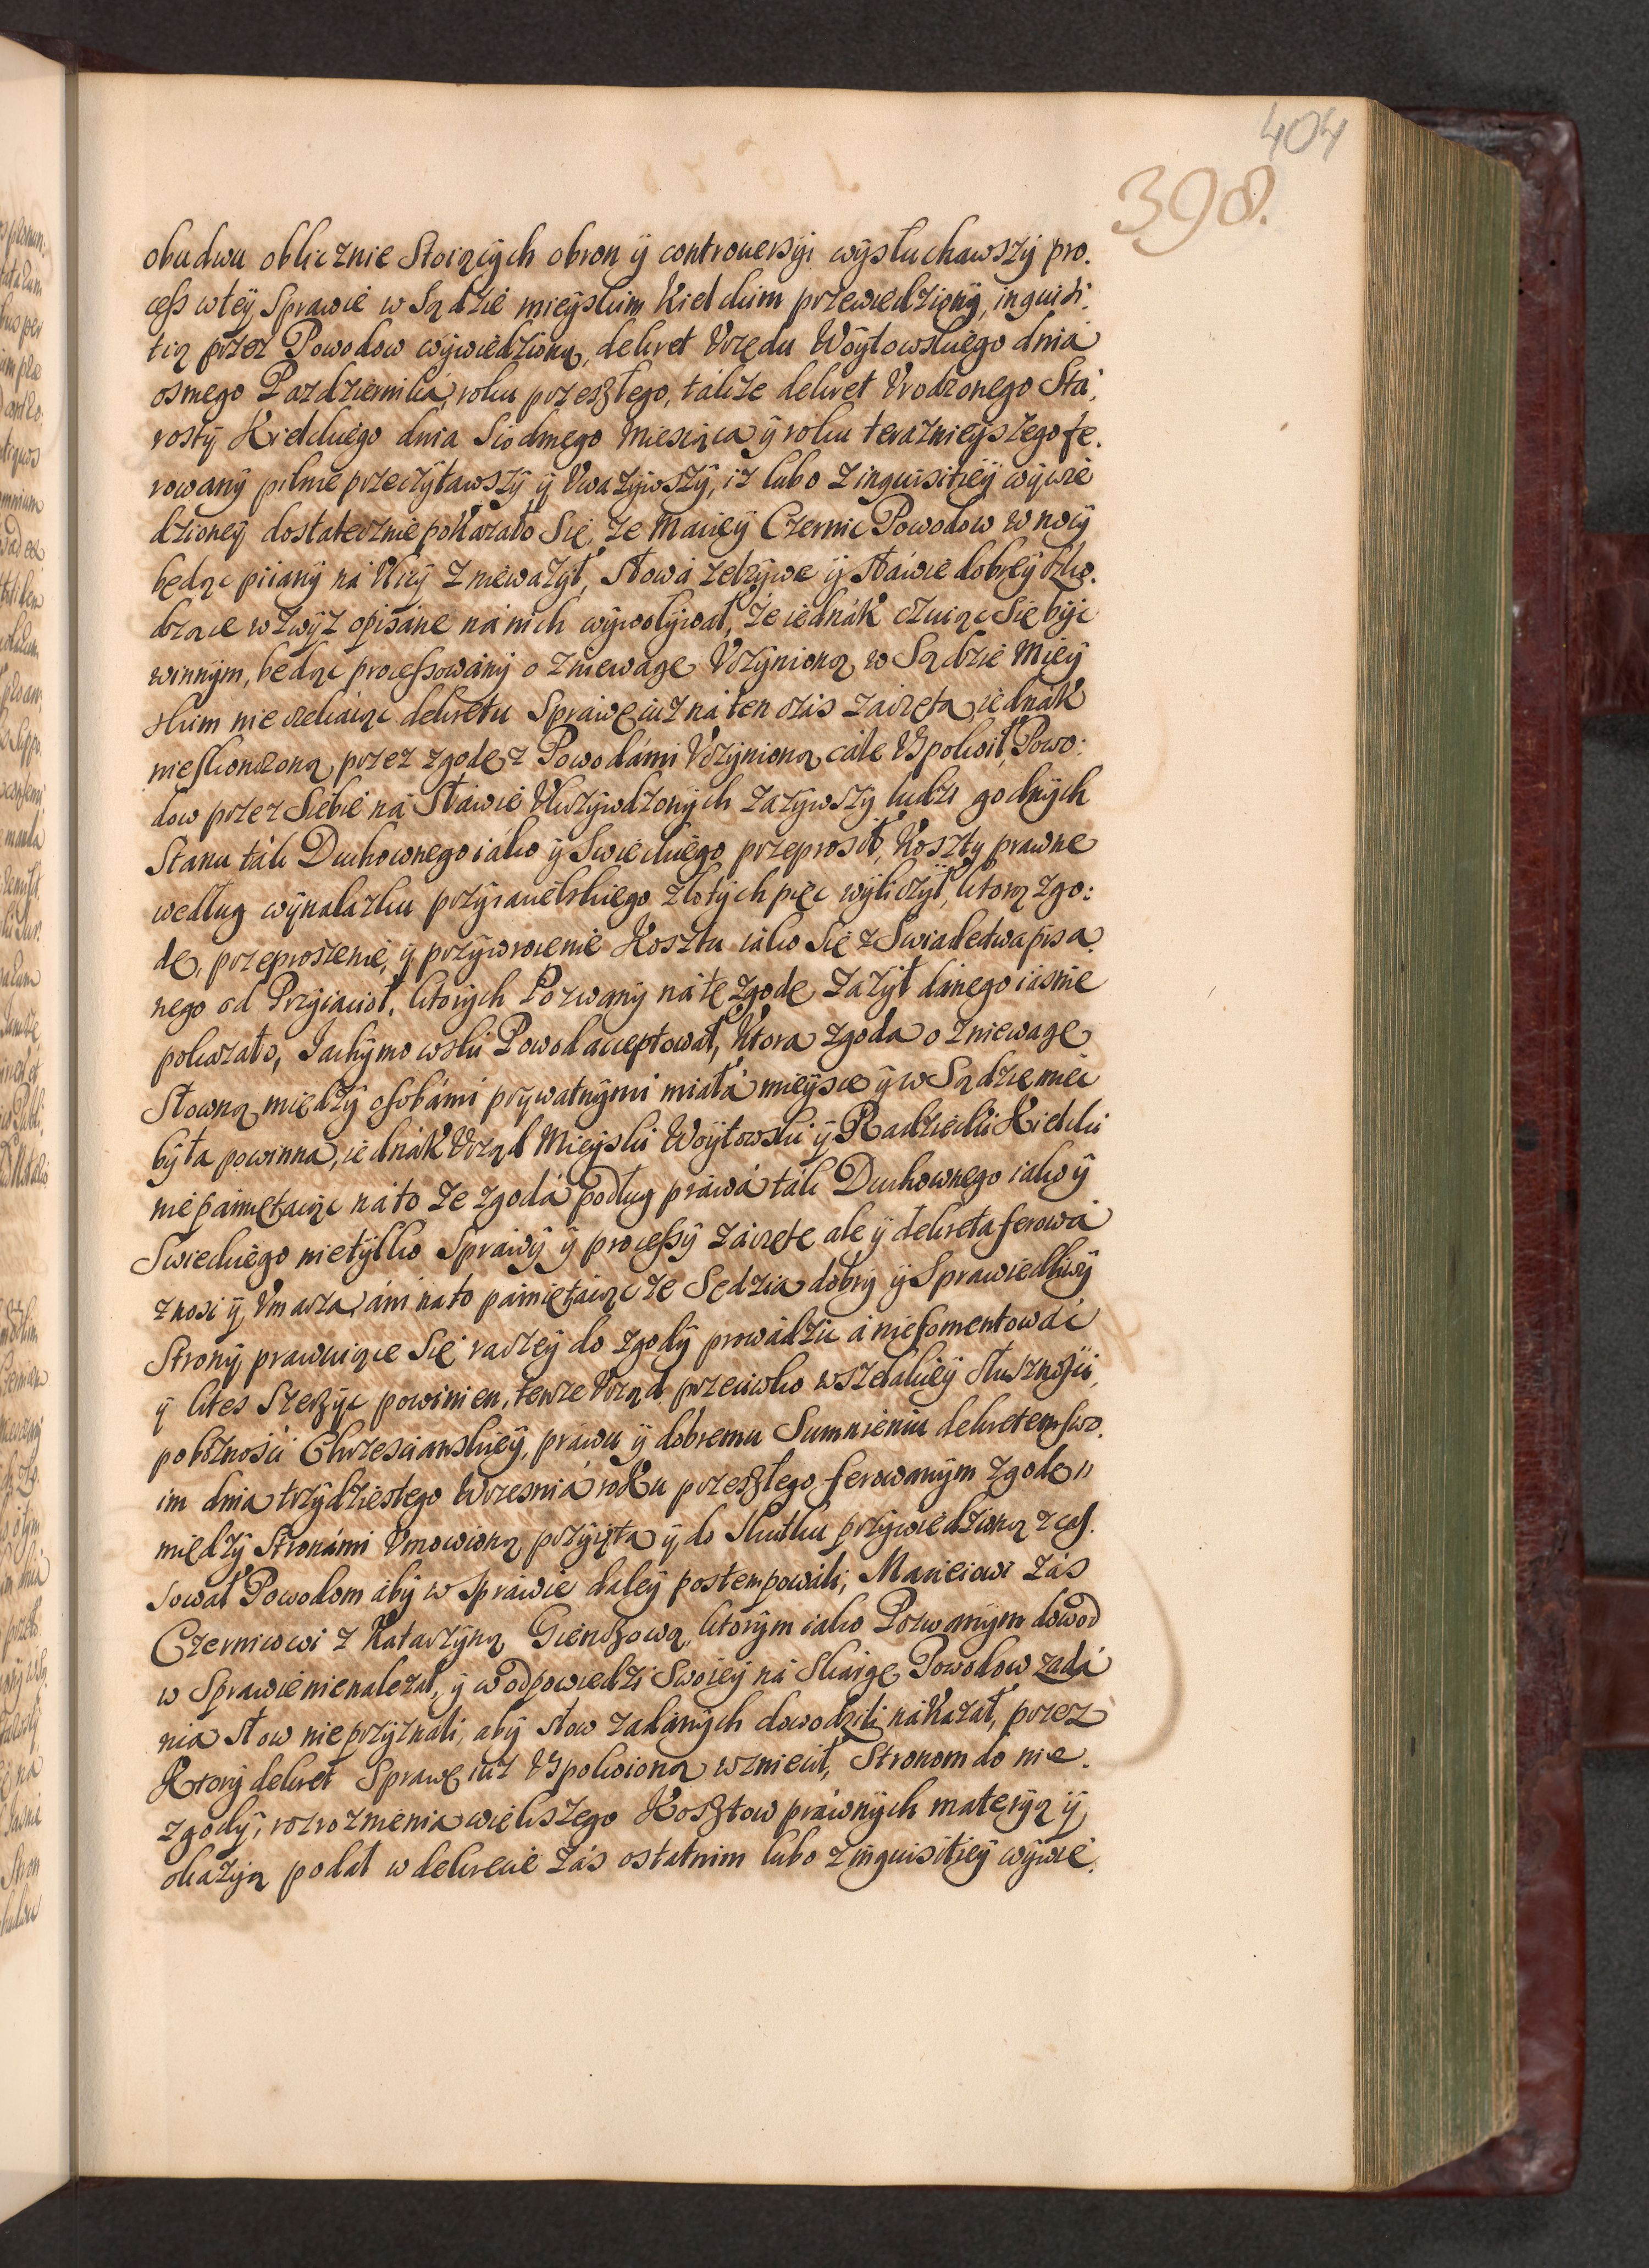 404
398.
obudwu oblicznie Stoiących obron ÿ controuersÿi wÿsłuchawszÿ pro.
cess wteÿ Sprawie w Sądzie mieyskim Kieleckim przewiedzionÿ, inquisi:
tią przez Powodow wÿwiedzioną, dekret Vrzędu Woÿtowskiego dnia
osmego Pazdziernika, roku przeszłego, tákze dekret Vrodzonego Sta,
rostÿ Kieleckiego dnia Siodmego Miesiąca ÿ roku teraznieÿszego fe.
rowanÿ pilnie przeczÿtawszÿ ÿ Vwazÿwszÿ, iz lubo z inquisitieÿ wÿwie
dzioneÿ dostatecznie pokazało Się, ze Macieÿ Czernic Powodow w nocÿ
będąc piianÿ ná Vlicÿ zniewazÿł, Słowá zelzÿwe ÿ Sławie dobreÿ szko.
dzące wzwÿz opisáne ná nich wÿwoływał, że iednák czuiąc Się bÿć
winnÿm, będąc processowánÿ o zniewagę Vczÿnioną w Sądzie Mieÿ
skim nie czekáiąc dekretu Sprawę iuz ná ten czás záczętą, iednák
nieskonczoną, przez zgodę z Powodámi Vczÿnioną cále Vspokoił, Powo:
dow przez Siebie ná Sławie Vkrzÿwdzonÿch zazÿwszÿ ludzi godnÿch
Stanu ták Duchownego iáko ÿ Swieckiego przeprosił, Kosztÿ prawne
według wÿnalazku przÿiacielskiego złotÿch pięc wÿliczÿł, ktorą zgo:
dę, przeproszenie, ÿ przÿwrocenie Kosztu iáko Się z Swiadectwa pisa.
nego od Przÿiacioł, ktorÿch Pozwanÿ ná tę zgodę zazÿł dánego iásnie
pokazało, Jachÿmowski Powod acceptował, Ktora zgoda o zniewagę
Słowną międzÿ osobámi prÿwatnÿmi miałá mieÿsce ÿ w Sądzie miec
bÿła powinna, iednák Vrząd Mieÿski Woÿtowski ÿ Radziecki Kielecki
nie pámiętaiąc ná to ze zgodá podług práwá ták Duchownego iako ÿ
Swieckiego nietÿlko Spráwÿ ÿ processÿ záczęte ale ÿ dekreta ferowá
znosi ÿ Vmarza, áni na to pámiętaiąc ze Sędzia dobrÿ ÿ Sprawiedliwÿ
Stronÿ prawuiące Się raczeÿ do zgodÿ prowádzic á nie fomentowác
ÿ lites Szerzÿc powinien, tenze Vrząd przeciwko wszelakieÿ Słusznosci,
poboznosci Chrzescianskieÿ, práwu ÿ dobremu Sumnieniu dekretem swo.
im dnia trzÿdziestego Wrzesniá roku przeszłego ferowanÿm zgodę
międzÿ Stronámi Vmowioną przÿiętą ÿ do Skutku przÿwiedzioną z cas.
sował Powodom áby w Spráwie daleÿ postempowáli, Macieiowi zás
Czernicowi z Katarzÿną Gienszową, ktorÿm iako Pozwanÿm dowod
w Sprawie nie nalezał, ÿ w odpowiedzi Swoieÿ ná Skargę Powodow zadá
nia Słow nie przÿznali, abÿ słow zadánÿch dowodzili nákazał, przez
Ktorÿ dekret Sprawę iuz Vspokoioną wzniecił, Stronom do nie.
zgodÿ, rozroznienia większego Kosztow práwnÿch materÿą ÿ
okazÿą podał w dekrecie zás ostatnim lubo z inquisitieÿ wÿwie.